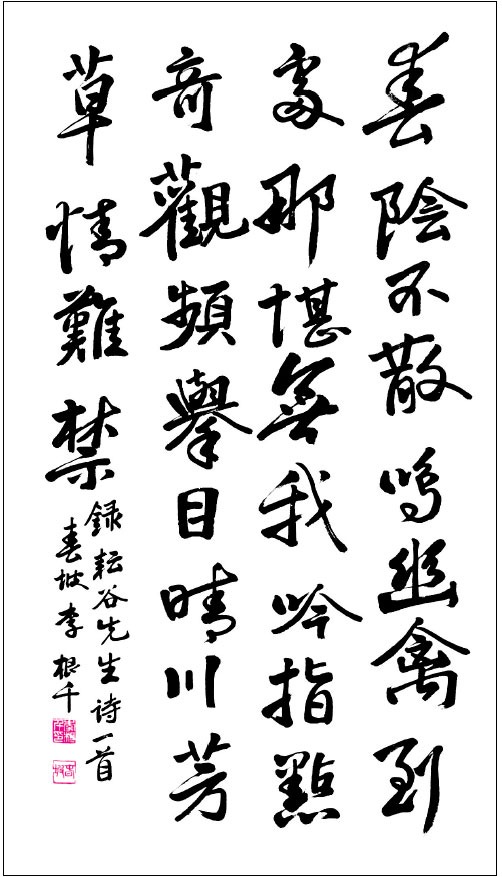 春陰不散鳴幽禽到
處那堪無我吟指點
奇觀頻舉目晴川芳
草情難禁
録耘谷先生诗一首
春坡李根千